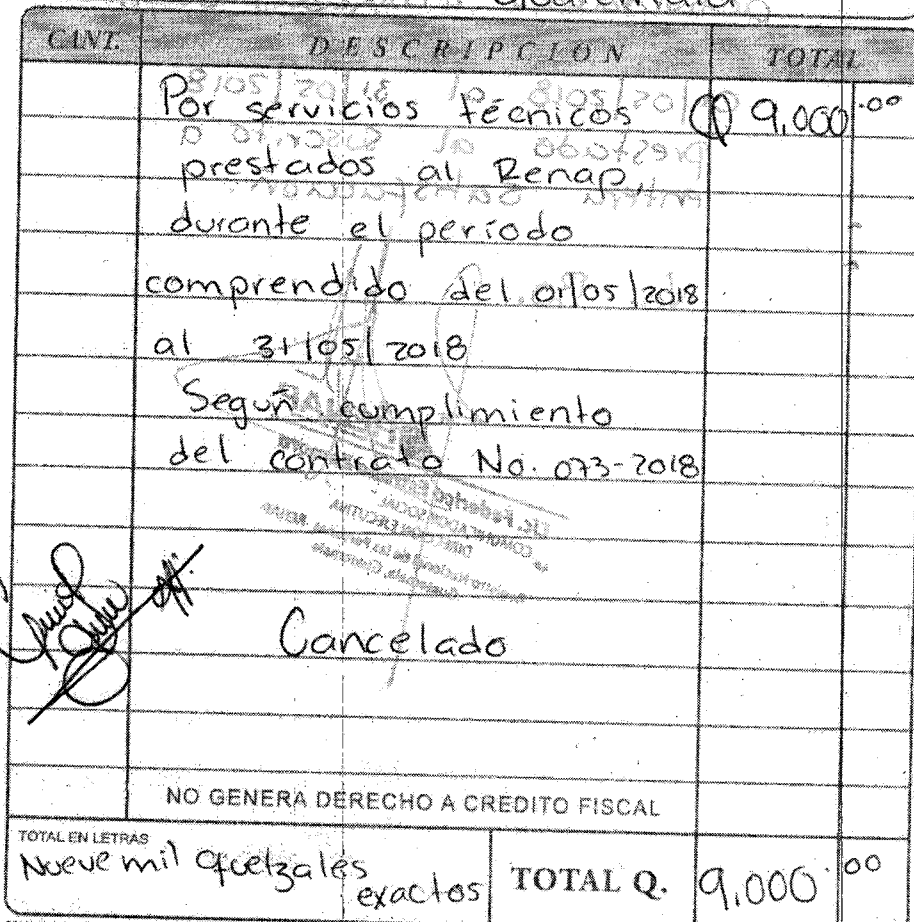 Guatemala
CANT. DESCRIPCION TOTAL
Por servicios técnicos Q 9,000.00
prestados al Renap,
durante el período
comprendido del 01/05/2018
al 31/05/2018
Según cumplimiento
del contrato No. 073-2018
Cancelado
NO GENERA DERECHO A CREDITO FISCAL
TOTAL EN LETRAS
Nueve mil Quetzales
exactos
TOTAL Q. 9,000.00